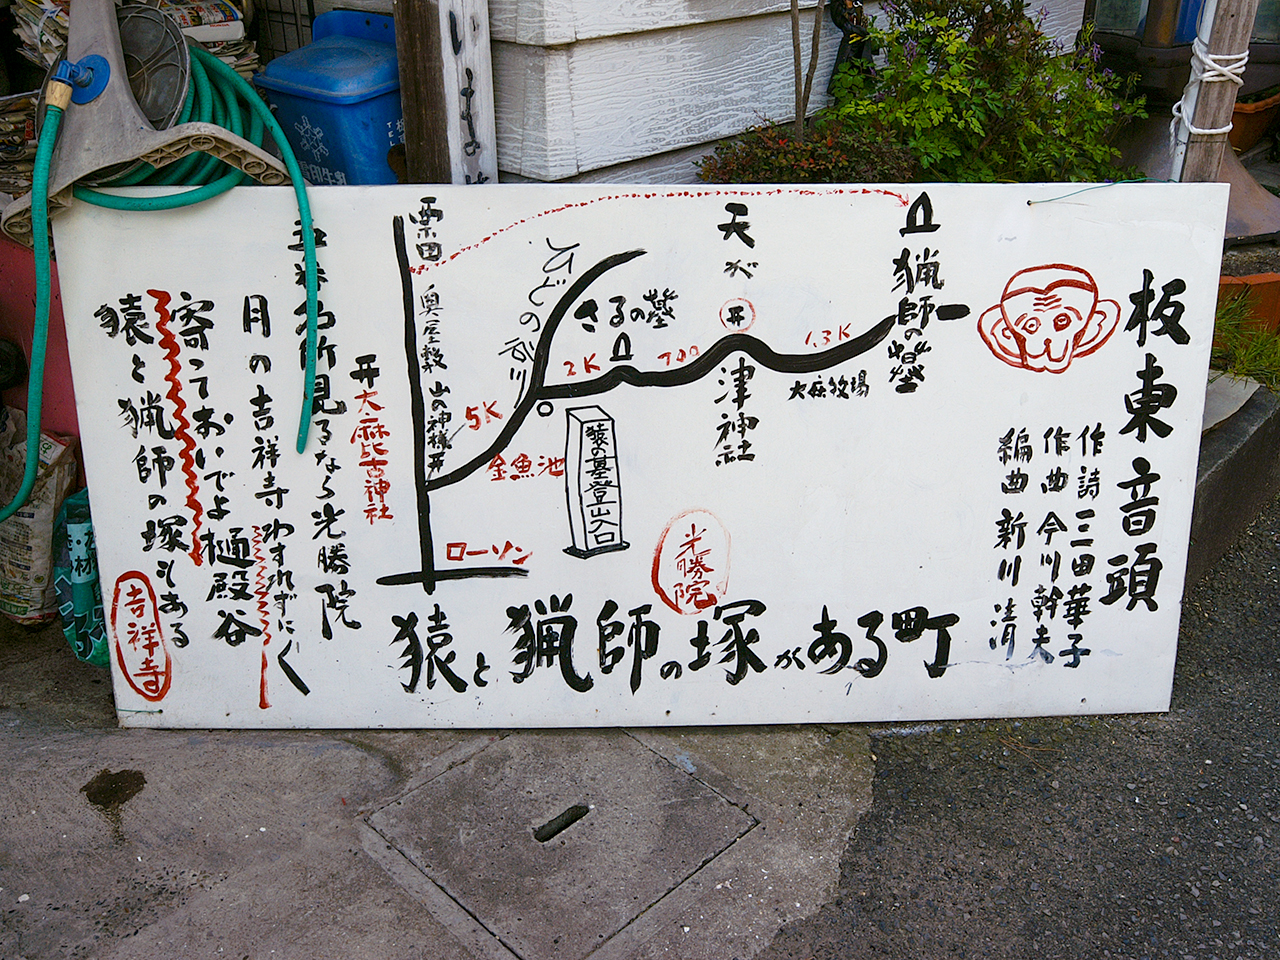 板東音頭
作詩 三田華子
作曲 今川幹夫
編曲 新川 清
猟師の墓
1.3K
大麻牧場
天が
津神社
700
さるの墓
2K
ひどの谷川
猿の墓登山口
金魚池
5K
光勝院
ローソン
粟田
奥屋敷
山の神様
大麻比古神社
名所見るなら光勝院
月の吉祥寺わすれずにく
寄っておいでよ樋殿谷
猿と猟師の塚もある
吉祥寺
猿と猟師の塚がある町